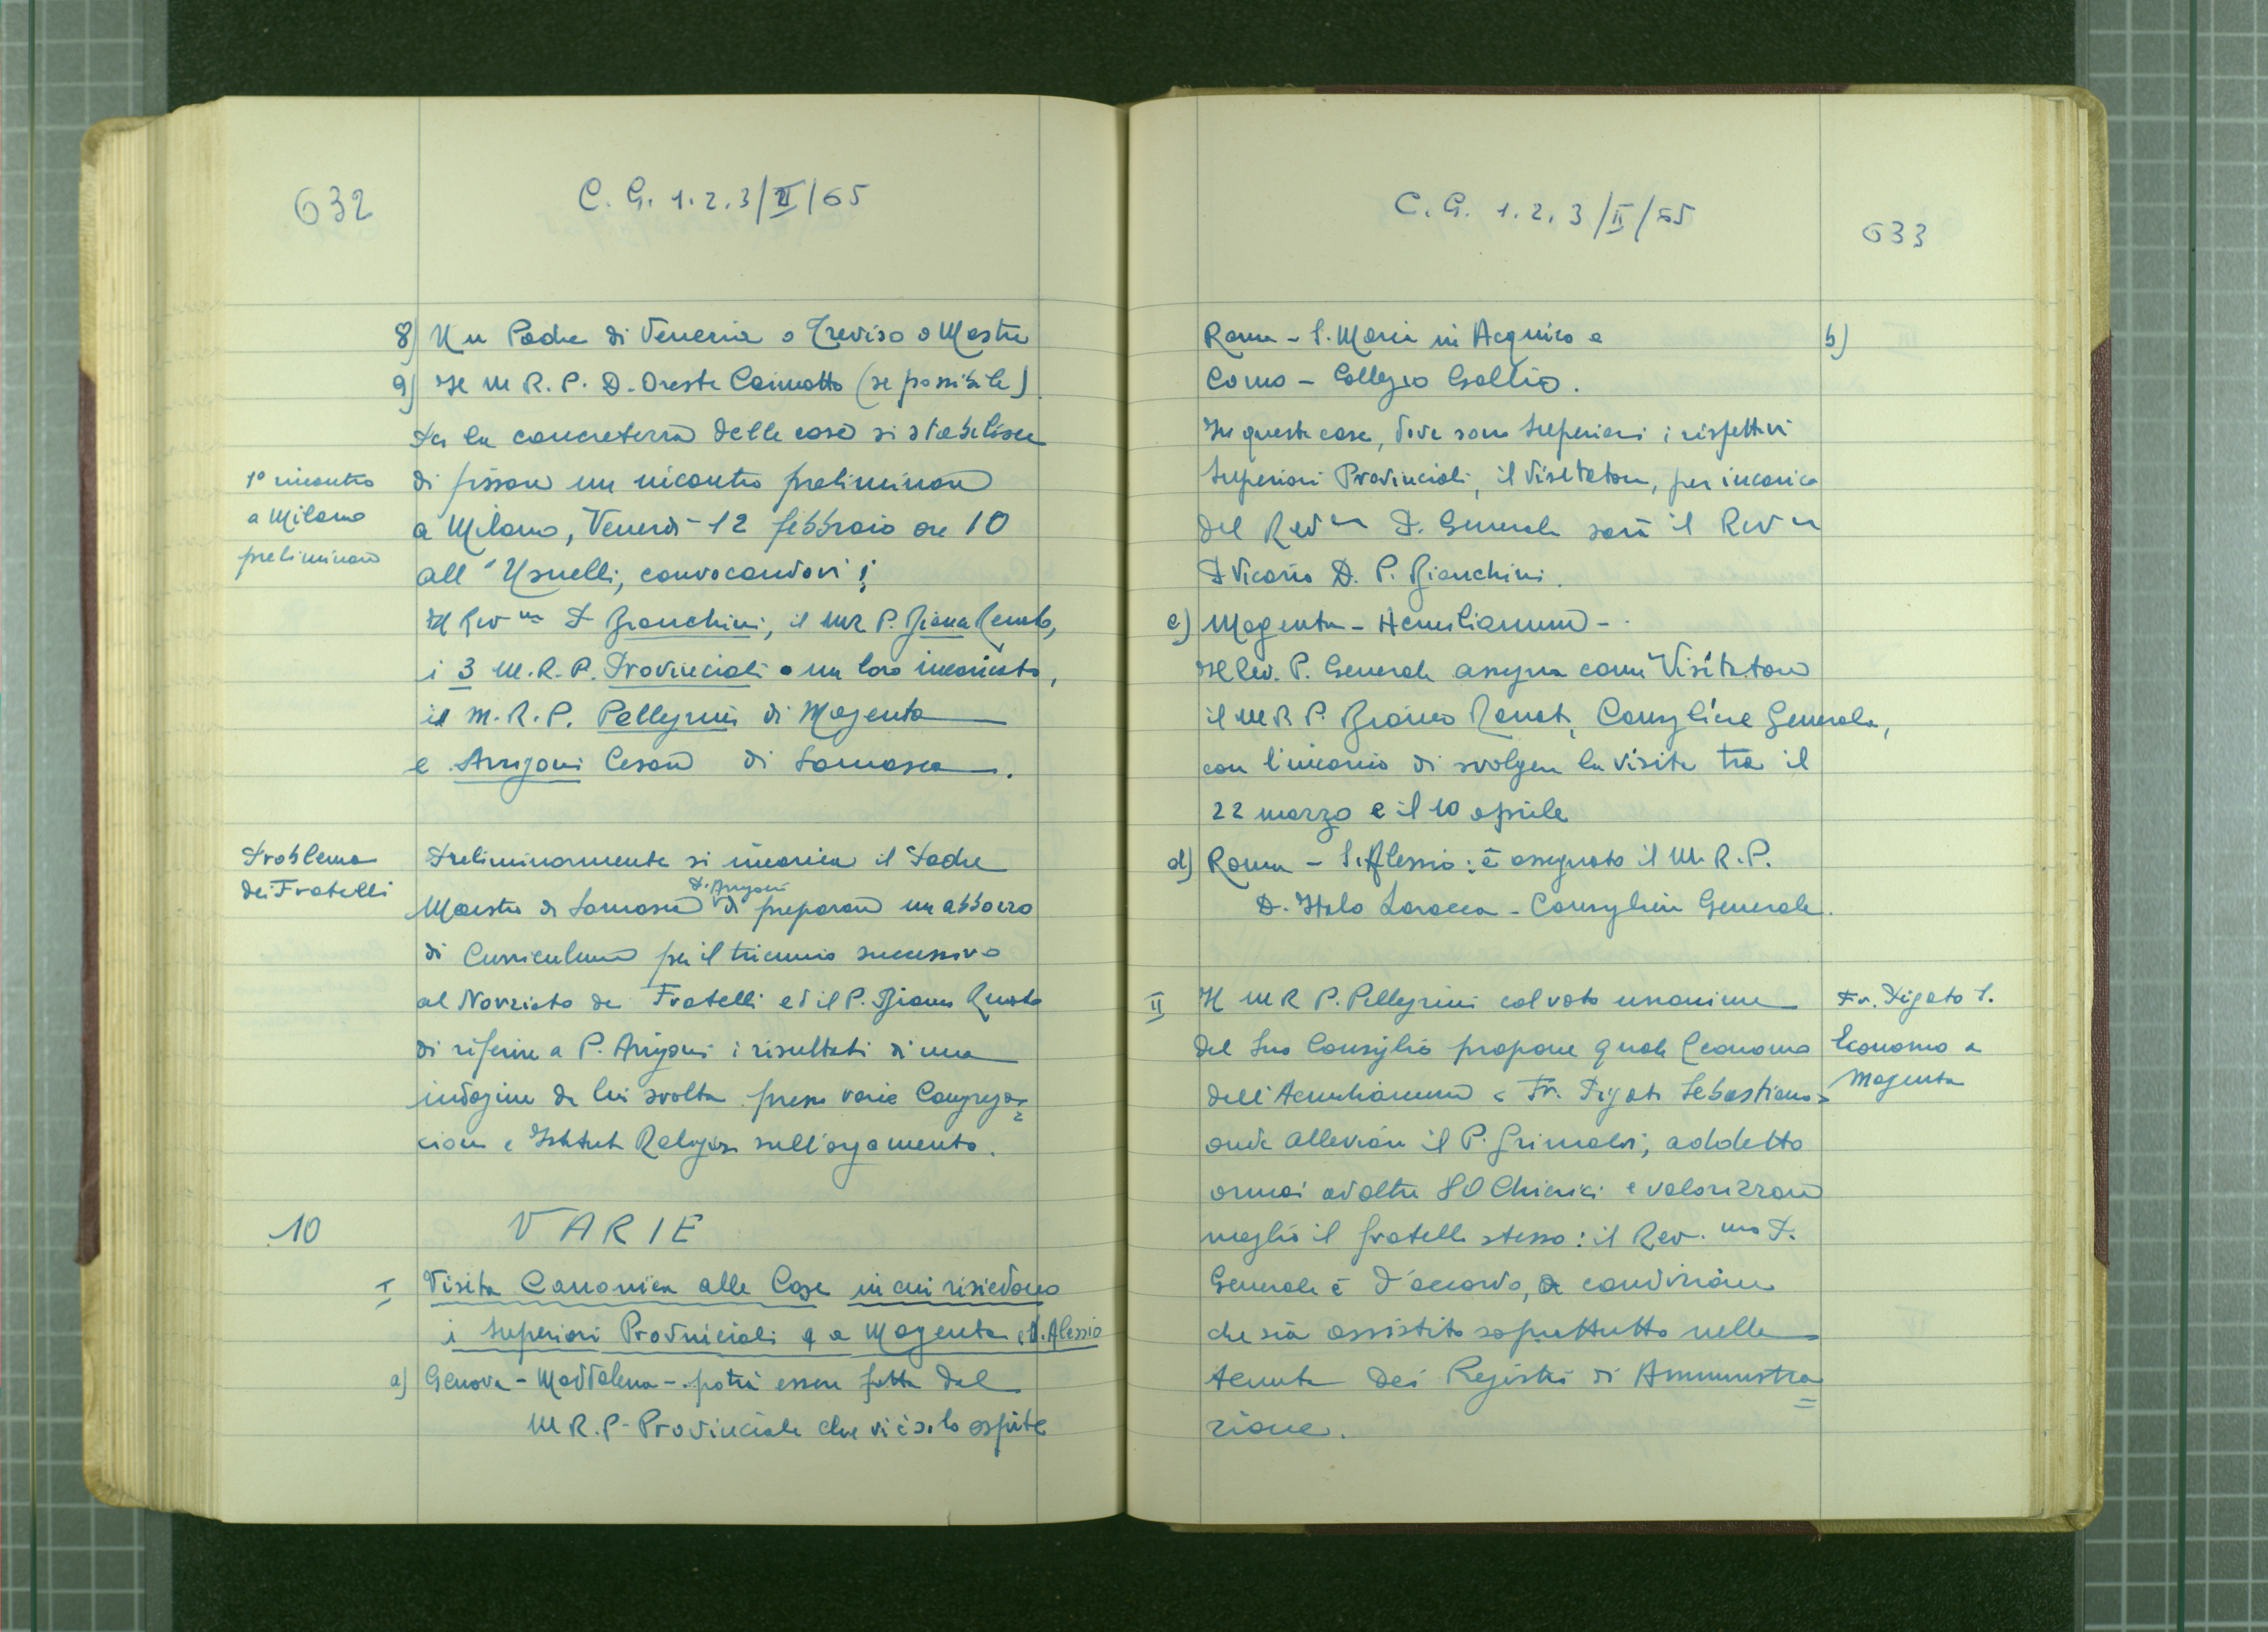 632
C. G. 1.2.3/II/65
8) Un Padre di Venezia o Treviso o Mestre
9) Il M R. P. D. Oreste Caimotto (se possibile)
Per la concretezza delle cose si stabilisce
1° incontro
a Milano
preliminare
di fissare un incontro preliminare
a Milano, Venerdì 12 febbraio ore 10
all'Usuelli, convocandovi:
Il Rev mo P. Bianchini, il M R P. Bianco Renato,
i 3 M. R. P. Provinciali o un loro incaricato,
il M. R. P. Pellegrini di Magenta
e Arrigoni Cesare di Somasca.
Problema
dei Fratelli
Preliminarmente si incarica il Padre
Maestro di Somasca P. Arrigoni di preparare un abbozzo
di Curriculum per il triennio successivo
al Noviziato dei Fratelli ed il P. Bianco Renato
di riferire a P. Arrigoni i risultati di una
indagine da lui svolta presso varie Congrega=
zioni e Istituti Religiosi sull'argomento.
10 VARIE
I Visita Canonica alle Case in cui risiedono
i Superiori Provinciali e a Magenta e S. Alessio
a) Genova - Maddalena - potrà essere fatta dal
M R. P. Provinciale che vi è solo ospite
C. G. 1.2.3/II/65
633
Roma - S. Maria in Aquiro e
b)
Como - Collegio Gallio.
In queste case, dove sono Superiori i rispettivi
Superiori Provinciali, il Visitatore, per incarico
del Rev mo P. Generale sarà il Rev mo
P. Vicario D. P. Bianchini.
c) Magenta - Aemilianum -
Il Rev. P. Generale assegna come Visitatore
il M R P. Bianco Renato, Consigliere Generale,
con l'incarico di svolgere la visita tra il
22 marzo e il 10 aprile
d) Roma - S. Alessio: è assegnato il M. R. P.
D. Italo Laracca - Consigliere Generale.
II Il M R P. Pellegrini col voto unanime
del suo Consiglio propone quale Economo
dell'Aemilianum < Fr. Pigato Sebastiano >
Fr. Pigato S.
Economo a
Magenta
onde alleviare il P. Grimaldi, addetto
ormai ad oltre 80 Chierici e valorizzare
meglio il fratello stesso: il Rev. mo P.
Generale è d'accordo, a condizione
che sia assistito soprattutto nella
tenuta dei Registri di Amministra=
zione.